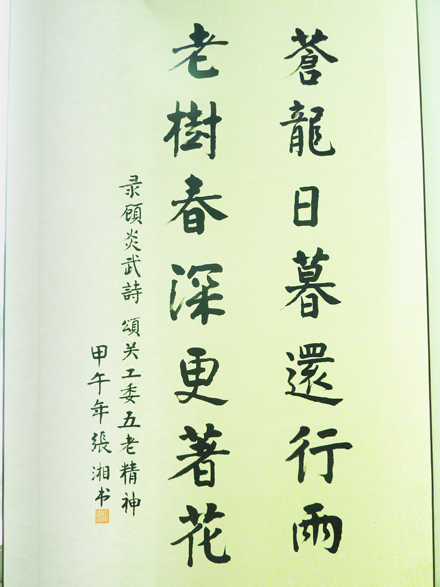 蒼龍日暮還行雨
老樹春深更著花
录顧炎武詩 頌关工委五老精神
甲午年張湘书